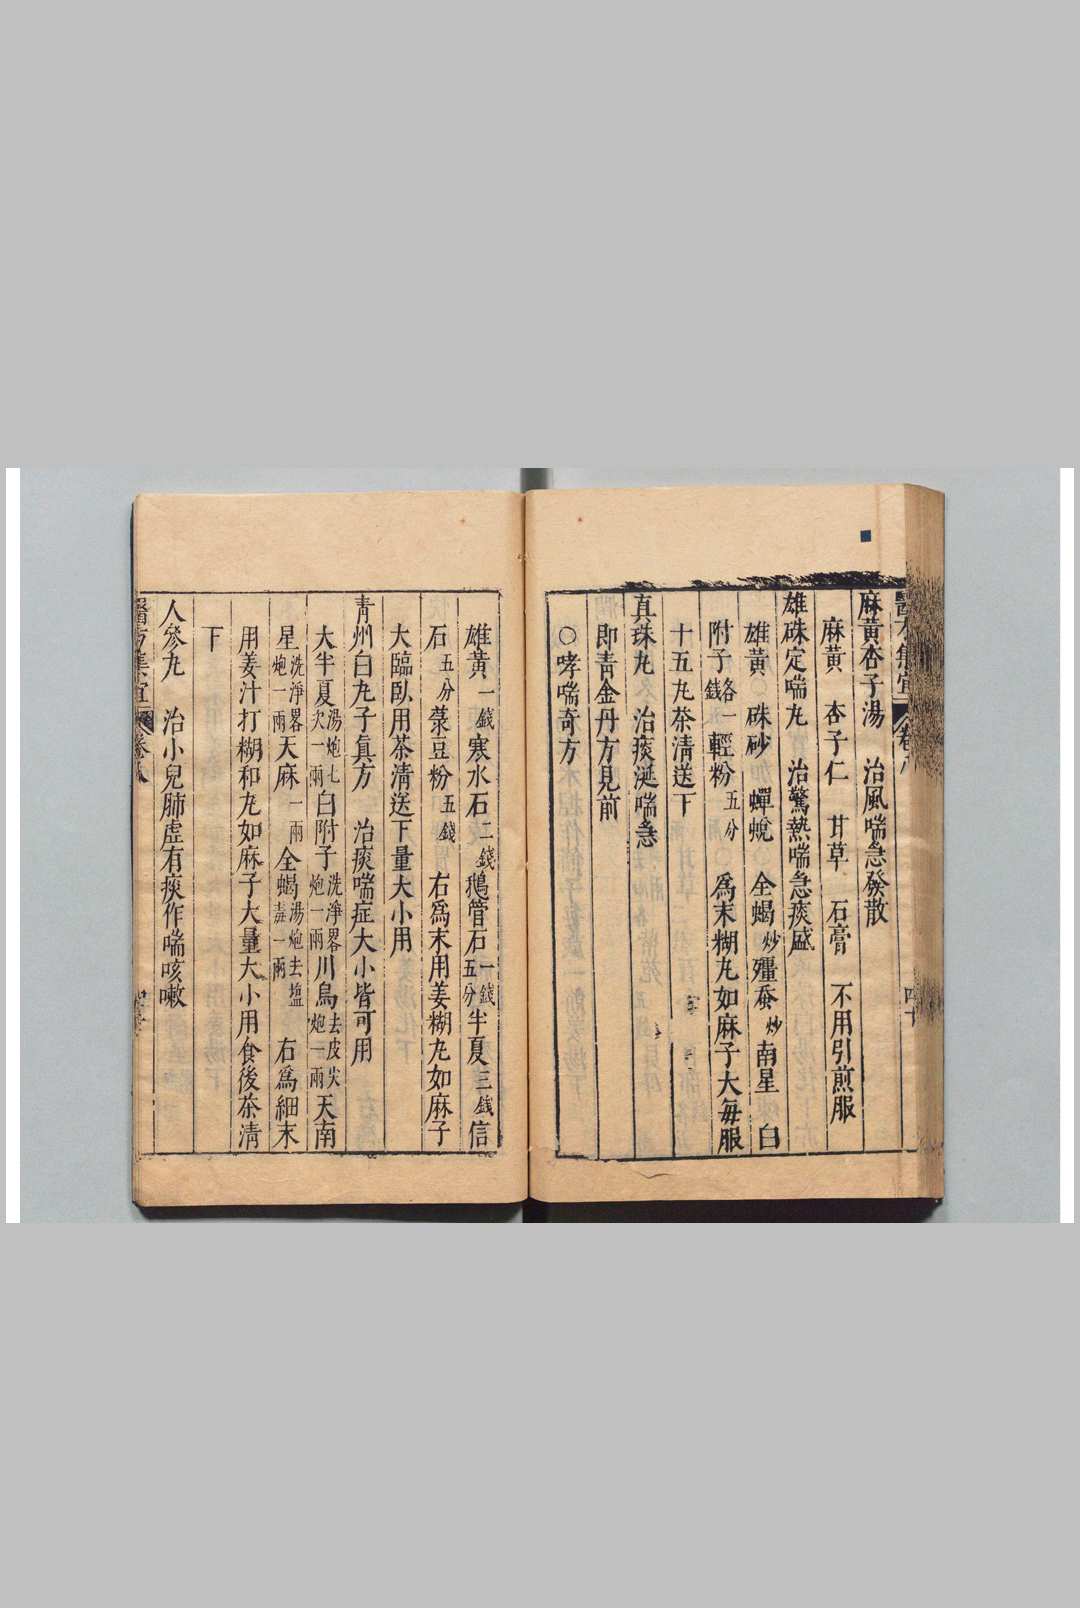 醫方集宜 卷八 四十
麻黃杏子湯 治風喘急發散
麻黃 杏子仁 甘草 石膏 不用引煎服
雄硃定喘丸 治驚熱喘急痰盛
雄黃 硃砂 蟬蛻 全蝎炒 殭蚕炒 南星 白
附子各一錢 輕粉五分 爲末糊丸如麻子大每服
十五丸茶清送下
真珠丸 治痰涎喘急
即青金丹方見前
○哮喘奇方
雄黃一錢寒水石二錢鵝管石五錢分半夏三錢信
石五分菉豆粉五錢 右爲末用姜糊丸如麻子
大臨臥用茶清送下量大小用
青州白丸子真方 治痰喘症大小皆可用
大半夏湯炮七次一兩白附子洗淨畧炮一兩川烏去皮尖炮一兩天南
星洗淨畧炮一兩天麻一兩全蝎湯炮去塩毒一兩 右爲細末
用姜汁打糊和丸如麻子大量大小用食後茶清
下
人參丸 治小兒肺虛有痰作喘咳嗽
醫方集宜 卷八